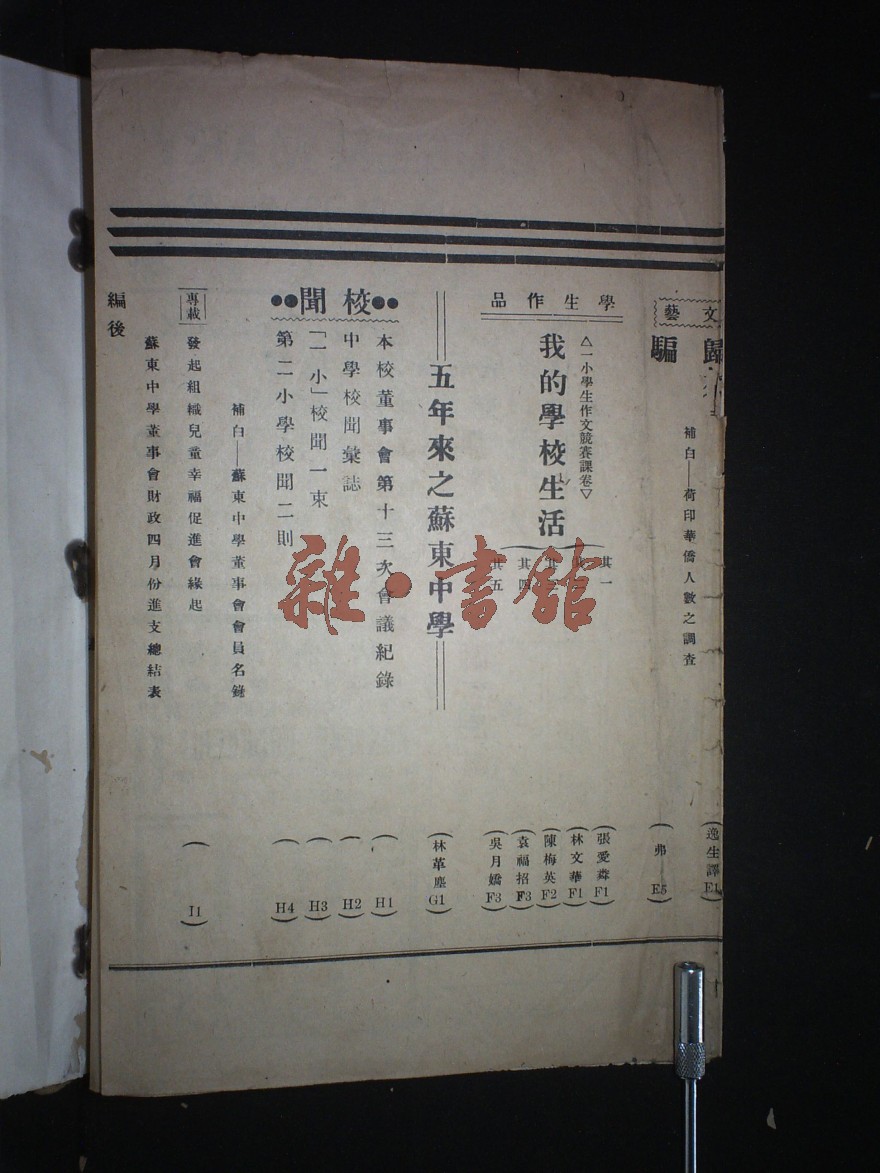 文藝
歸
(逸生譯 E1)
補白——荷印華僑人數之調查
騙
(弗 E5)
學生作品
△一小學生作文競賽課卷▽
我的學校生活
其一 (張愛蓮 F1)
(林文華 F1)
(陳梅英 F2)
其四 (袁福招 F3)
其五 (吳月嬌 F3)
五年來之蘇東中學 (林革塵 G1)
●●校聞●●
本校董事會第十三次會議紀錄 (H1)
中學校聞彙誌 (H2)
「一小」校聞一束 (H3)
第二小學校聞二則 (H4)
補白——蘇東中學董事會會員名錄
專載
發起組織兒童幸福促進會緣起 (I1)
蘇東中學董事會財政四月份進支總結表
編後
雜·書館